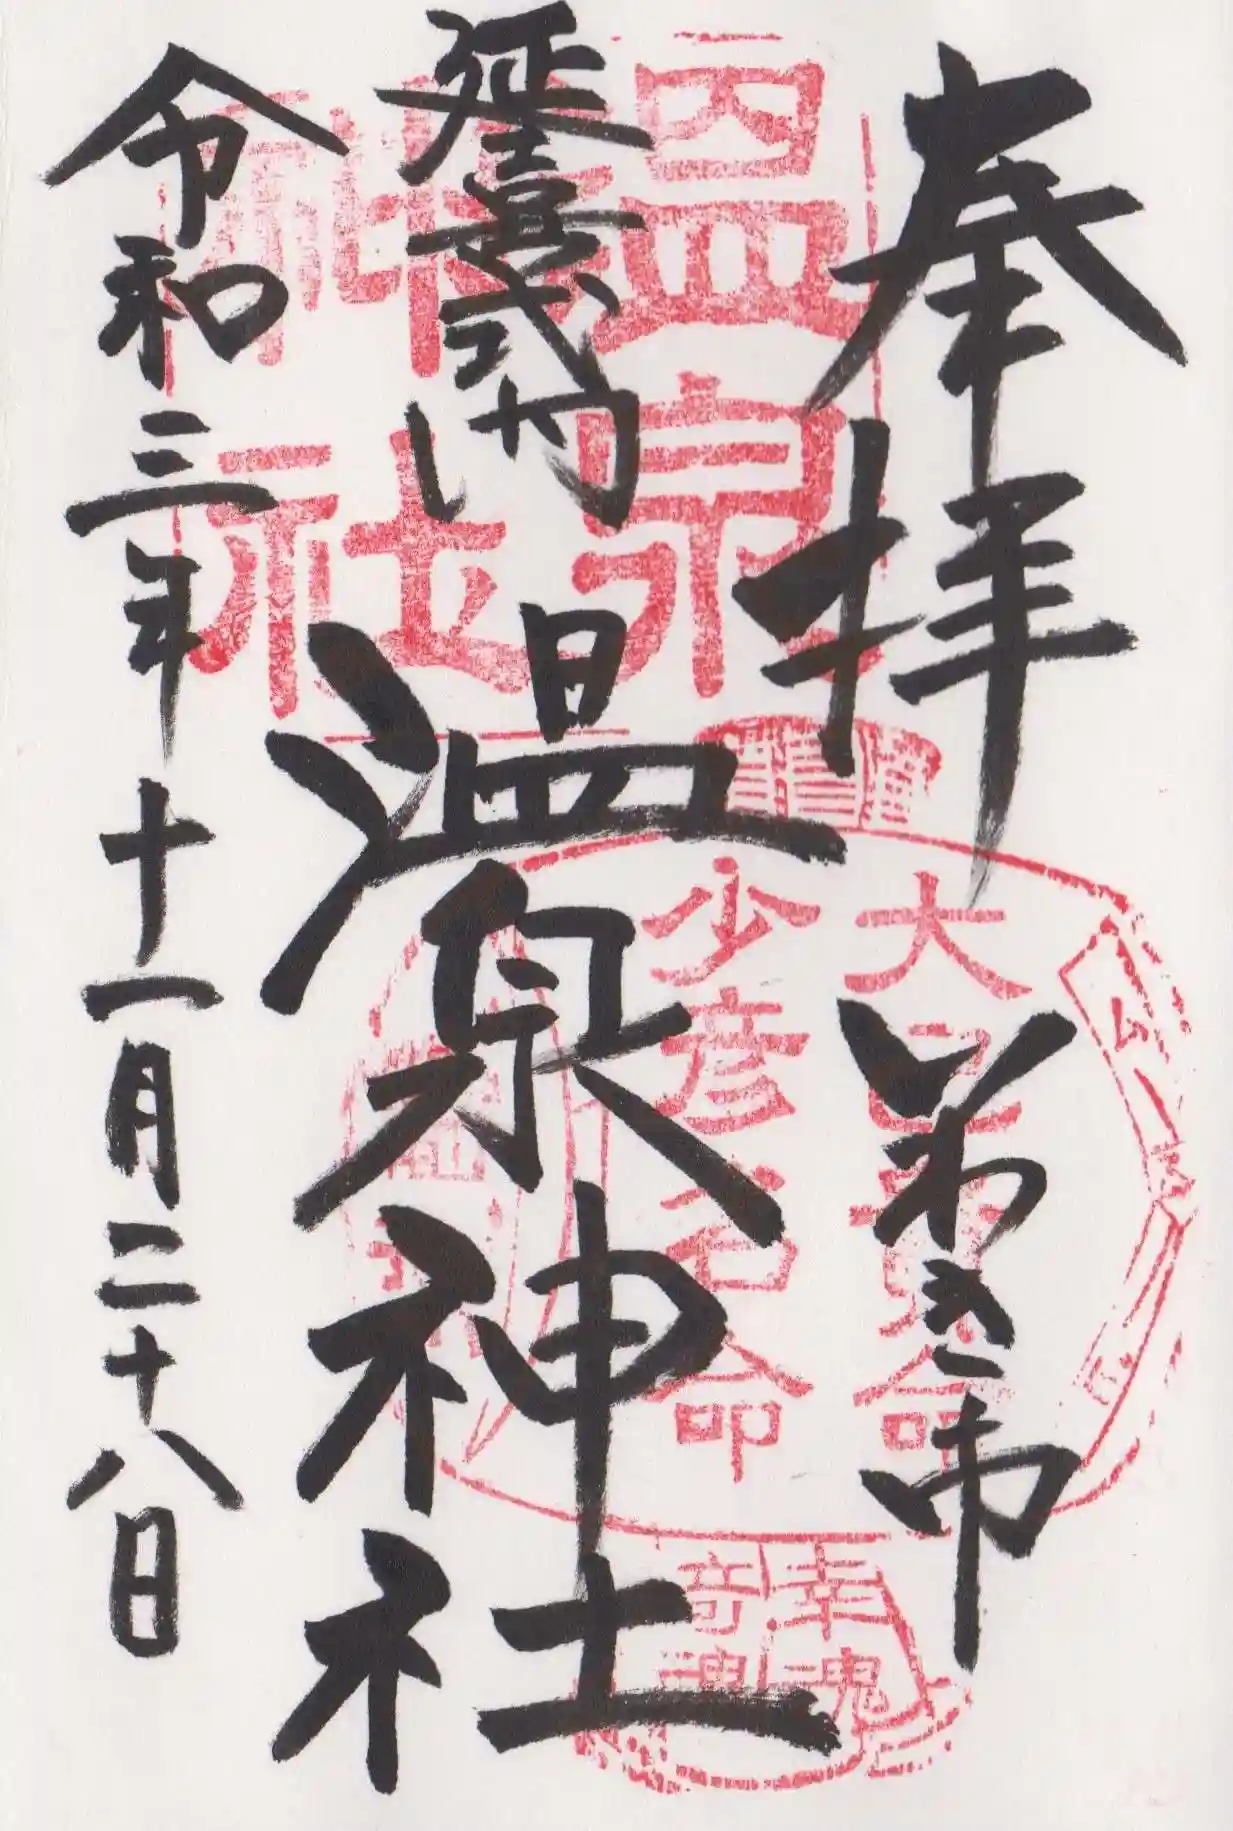 奉拝
いわき市
延喜式内
温泉神社
令和三年十一月二十八日
温泉
神社
少彦名命
幸魂
奇魂